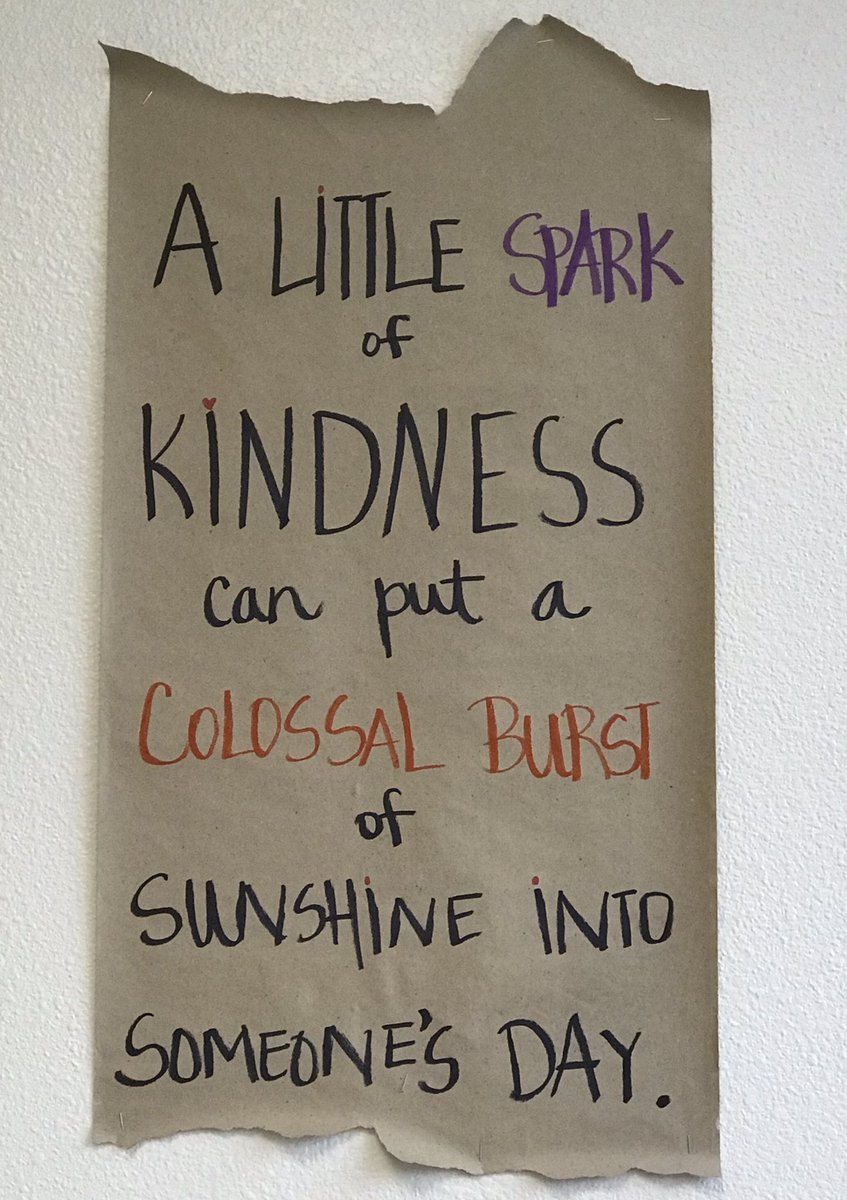 A LiTTLE SPARK
of
KiNDNESS
can put a
COLOSSAL BURST
of
SUNSHiNE iNTO
SOMEONE'S DAY.